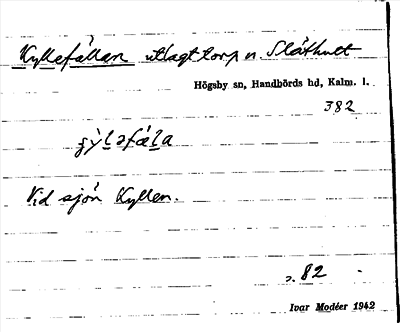 Kyllefällan utlagt torp u. Slåthult
Högsby sn, Handbörds hd, Kalm. l.
382
Vid sjön Kyllen.
82
Ivar Modéer 1942